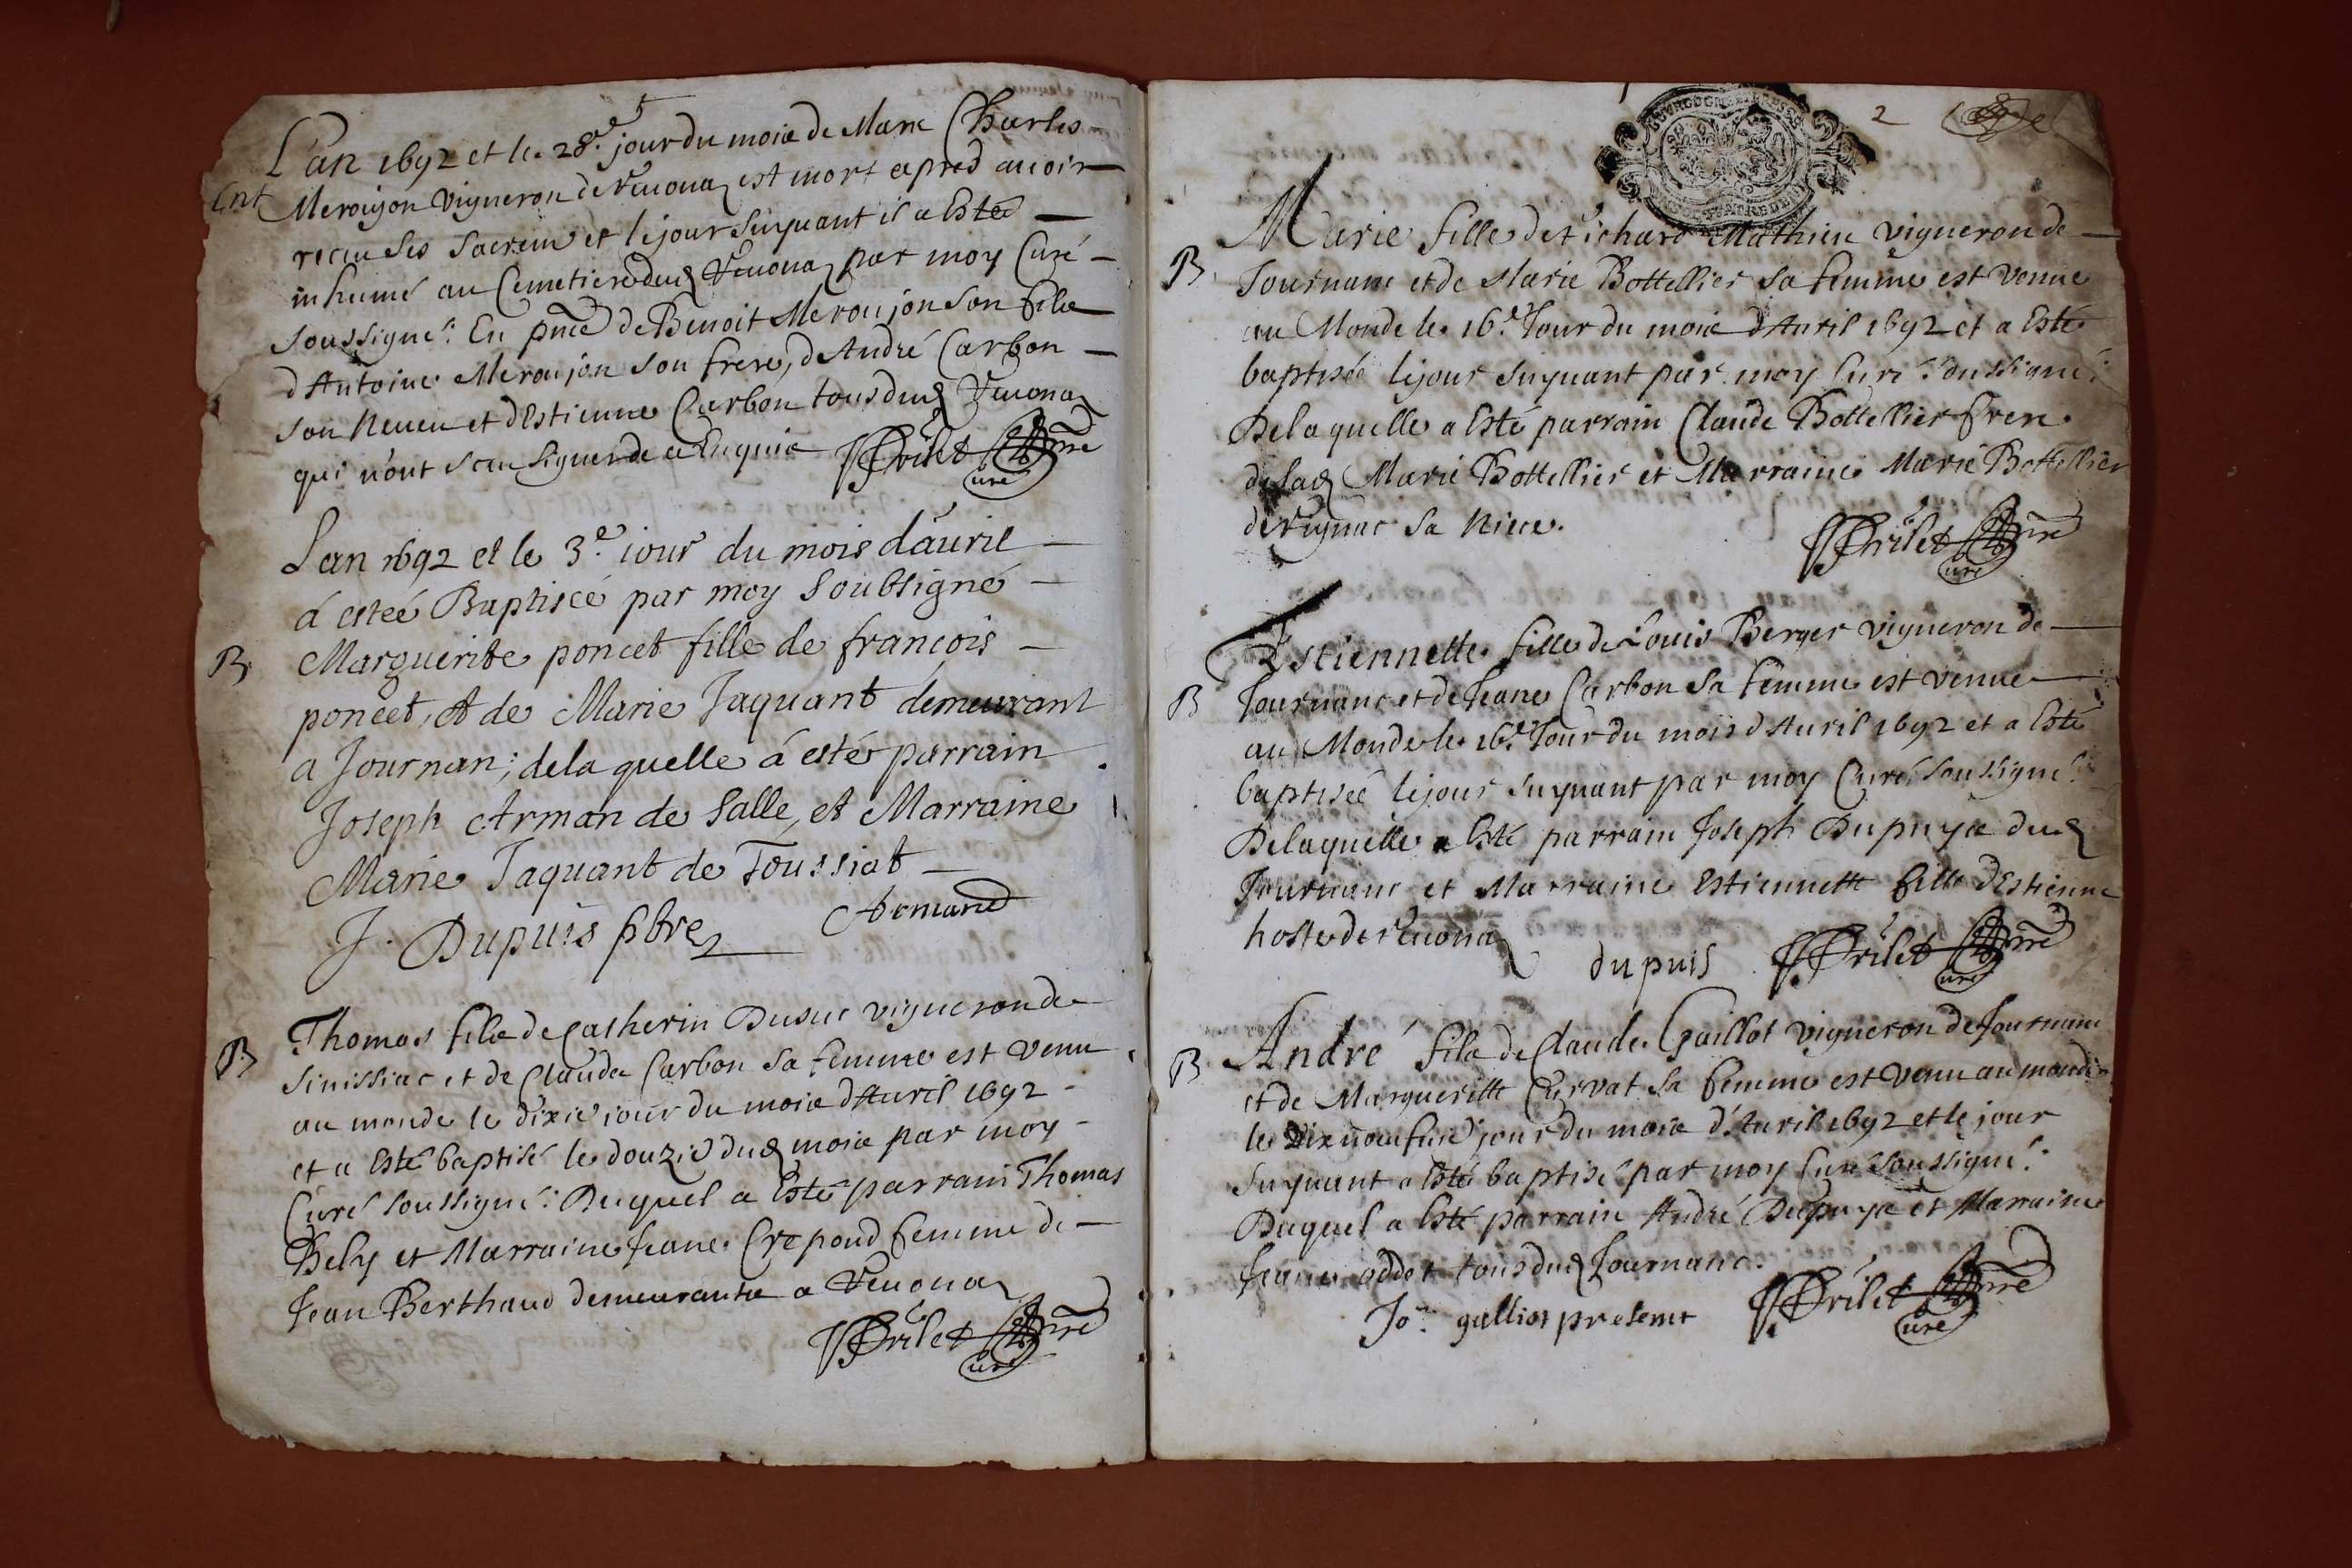 L'an 1692 et le 28.e jour du mois de Mars Charles
Ent
Meroujon vigneron de Reuonas est mort apres auoir
receu ses Sacremts et le jour Suyuant il a Esté
inhumé au Cemetiere dud Reuonas par moy Curé
soussigné: En pnce de Benoit Meroujon son fils
d'Antoine Meroujon son frere, d'André Carbon
son Neueu et d'Estienne Carbon tous dud Reuonas
qui n'ont sceu signer de ce Enquis
Curé
Lan 1692 et le 3.e iour du mois dáuril
á esteé Baptiseé par moy Soubsigné
B
Marguerite poncet fille de francois
poncet, et de Marie Jaquant demeurant
a Journan; dela quelle á esté parrain
Joseph Arman de Salle, et Marraine
Marie Jaquant de Toussiat
J. Dupuis pbre Armand
Thomas fils de Catherin Dusuc vigneron de
B
Sinissiac et de Clauda Carbon sa femme est venu
au monde le dixie jour du mois d'Auril 1692
et a Esté baptisé le douzie dud mois par moy
Curé soussigné: Duquel a Esté parrain Thomas
Bely et Marraine Jeane Crepond femme de
Jean Berthaud demeurants a Reuonas
Curé
2
Marie fille de Richard Mathieu vigneron de
B
Journans et de Marie Bottellier sa femme est venue
au Monde le 16.e Jour du mois d'Auril 1692 et a Esté
baptisée le jour suyuant par moy Curé soussigné:
De laquelle a Esté parrain Claude Bottellier frere
de lad Marie Bottellier et Marraine Marie Bottellier
sa Niece.
Curé
Estiennette fille de Louis Berger vigneron de
B
Journans et de Jeane Carbon sa femme est venue
au Monde le 16.e Jour du mois d'Auril 1692 et a Esté
baptisée le jour suyuant par moy Curé soussigné:
De laquelle a Esté parrain Joseph Dupuys dud
Journans et Marraine Estiennette fille d'Estienne
hoste de Reuonas
dupuis
Curé
André fils de Claude Gaillot vigneron de Journans
B
et de Marguerite Curvat sa femme est venu au monde
le Dixneufuie jour du mois d'Auril 1692 et le jour
suyuant a Esté baptisé par moy Curé soussigné:
Duquel a Esté parrain André Dupuys et Marraine
Jeane addet tous dud Journans.
Jo: gallion present
Curé